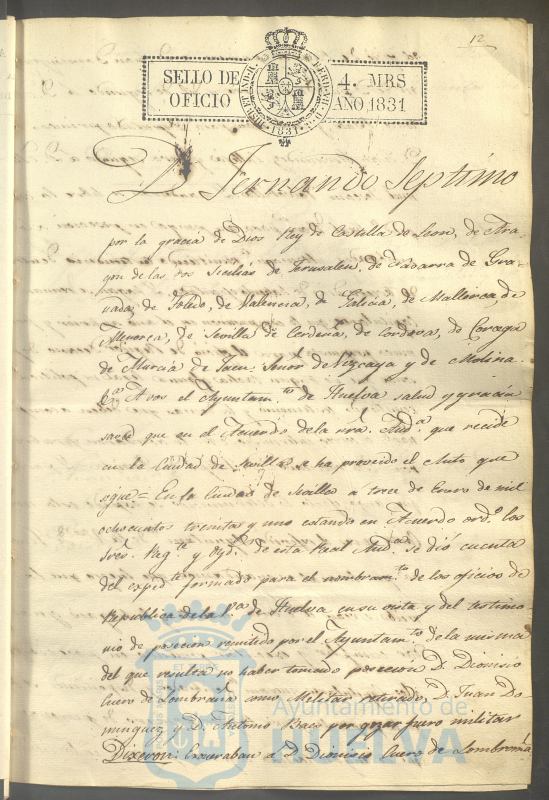 12
SELLO DE OFICIO
4. MRS AÑO 1831
1831
D. Fernando Septimo
por la gracia de Dios Rey de Castilla de Leon, de Ara
gon de las dos Sicilias de Jerusalen, de Navarra de Gra
nada, de Toledo, de Valencia, de Galicia, de Mallorca, de
Menorca, de Sevilla de Cerdeña, de Cordova, de Corcega
de Murcia de Jaen, Señor de Vizcaya y de Molina.
&ª A vos el Ayuntam.to de Huelva salud y gracia
saved que en el Acuerdo de la nra. Aud.ª que recide
en la Ciudad de Sevilla se ha proveido el Auto que
sigue = En la Ciudad de Sevilla a trece de Enero de mil
ochocientos treinta y uno estando en Acuerdo ord.º los
Sres. Reg.te y Oyd.s de esta Real Aud.ª se dió cuenta
del exped.te formado para el nombram.to de los oficios de
Republica de la V.ª de Huelva en su vista y del testimo
nio de posecion remitido por el Ayuntam.to de la misma
del que resulta no haber tomado posecion D. Dionisio
Cuero de Lombraña como Militar retirado, D. Juan Do
minguez y D. Antonio Baco por gozar fuero militar
Dixeron: Excusaban a D. Dionisio Cuero de Lombraña
Ayuntamiento de
HUELVA